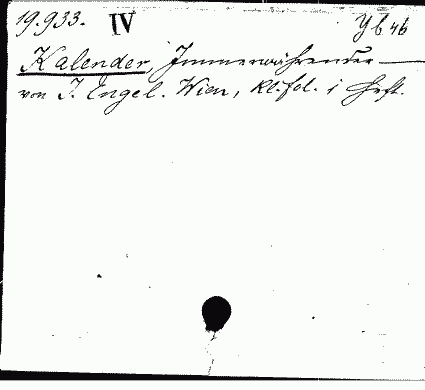 19.933. IV Yb 46
Kalender, Immerwährender —
von J. Engel. Wien, kl. fol. 1 Heft.